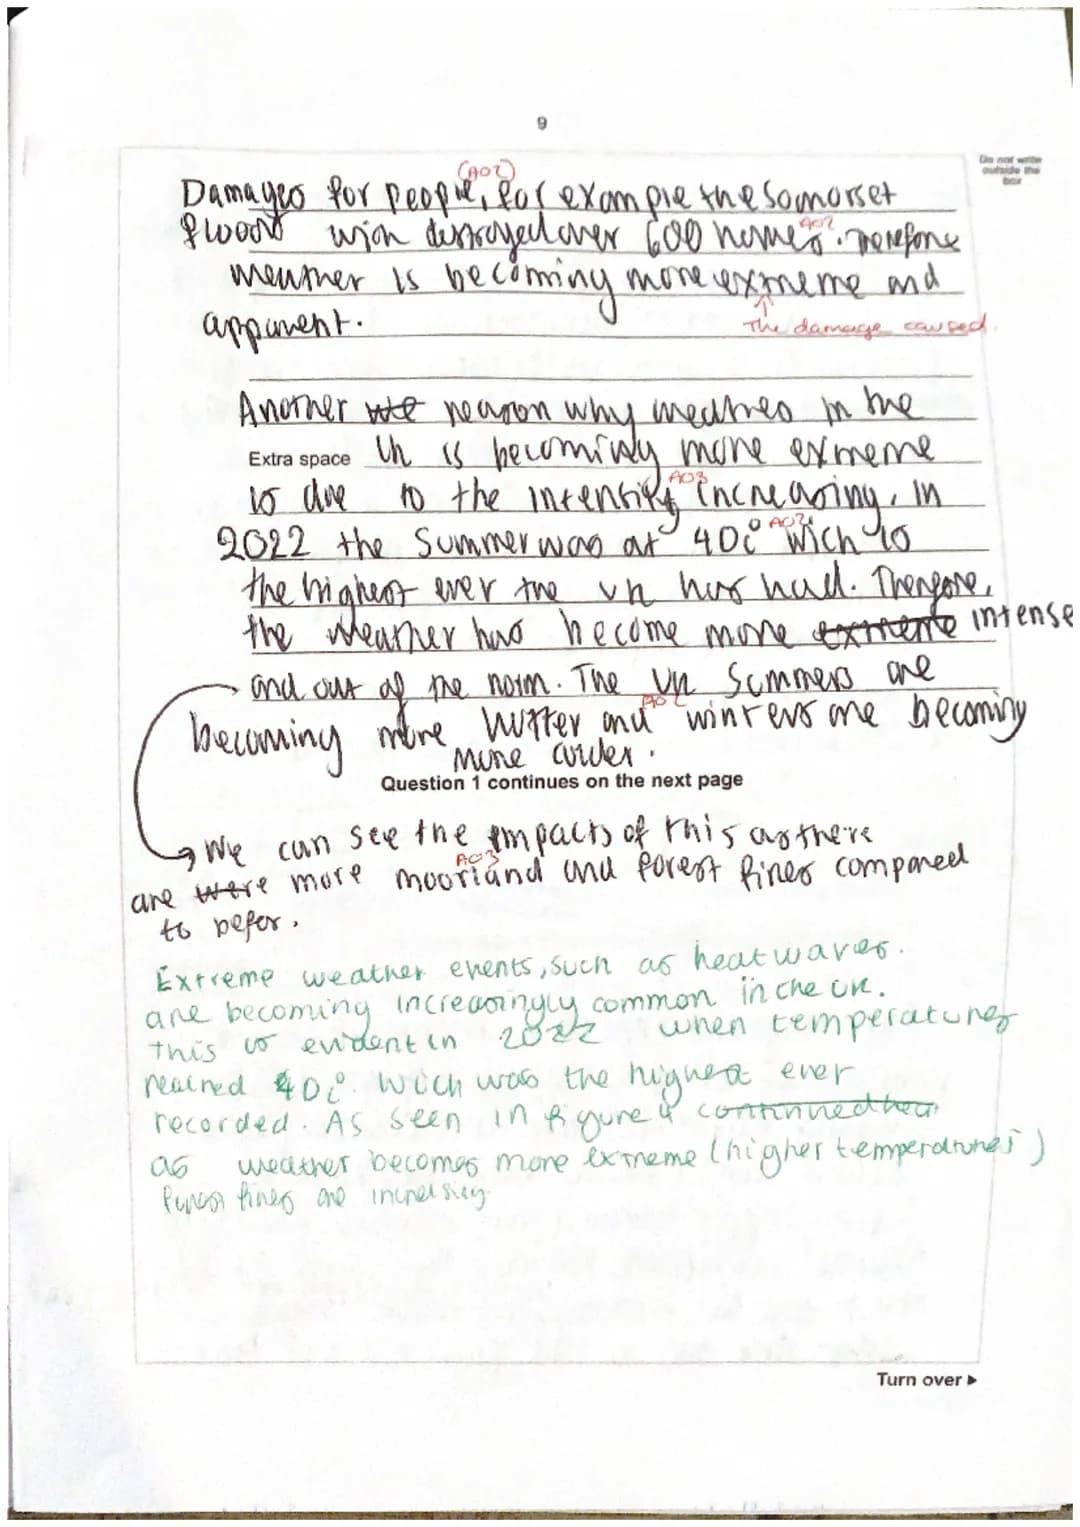 9
Do not write
outside the
box
(AO2)
Damages for people, for example the Somorset
floods wich destroyed over 600 homes. Therefore
AO2
weather is becoming more extreme and
apparent.
The damage caused.
Another reason why weather in the
Extra space Uk is becoming more extreme
is due to the intensity increasing. In
AO3
2022 the Summer was at 40c° wich is
AO2
the highest ever the uk has had. Therefore,
the weather has become more extreme intense
and out of the norm. The Uk Summers are
becoming more hotter and winters are becoming
AO2
more colder.
Question 1 continues on the next page
We can see the impacts of this as there
are were more moorland and forest fires compared
AO3
to befor.
Extreme weather events, such as heatwaves.
are becoming increasingly common in the UK.
this is evident in 2022 when temperatures
reached 40c°. Wich was the highest ever
recorded. As seen in figure 4
as weather becomes more extreme (higher temperatures)
forest fires are increasing.
Turn over ►